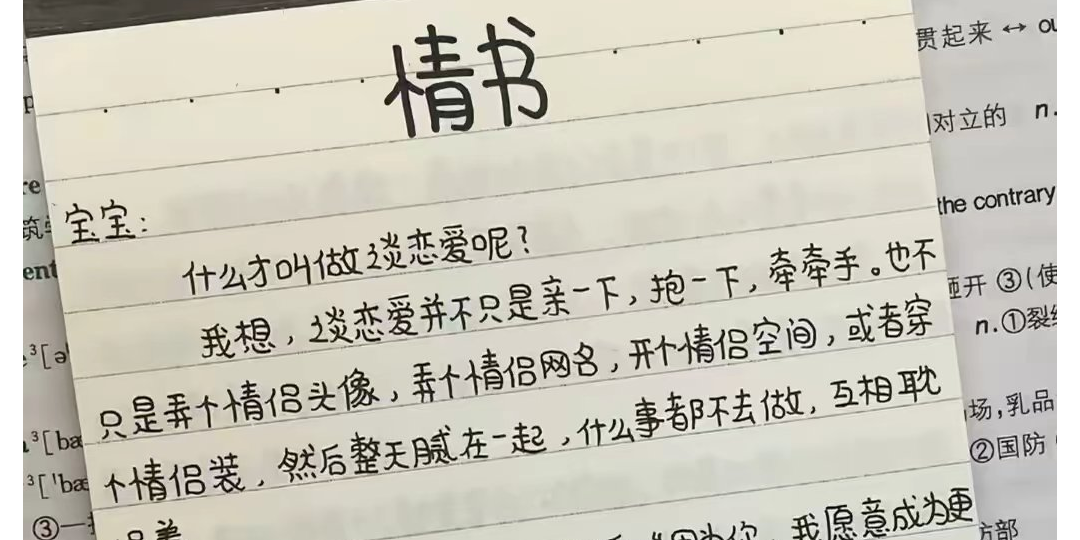 情书
宝宝：
什么才叫做谈恋爱呢？
我想，谈恋爱并不只是亲一下，抱一下，牵牵手。也不
只是弄个情侣头像，弄个情侣网名，开个情侣空间，或者穿
个情侣装，然后整天腻在一起，什么事都不去做，互相耽
"因为你，我愿意成为更
贯起来 ↔ ou
对立的 n.
the contrary
③(使
n.①裂
场,乳品
②国防
方部
re
ent
³[ə
³[bæ
³['bæ
③一